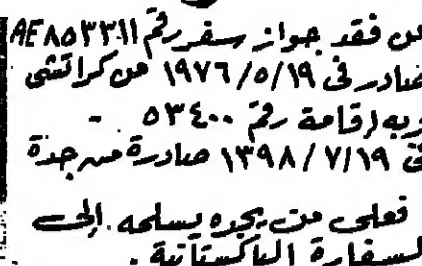 عن فقد جواز سفر رقم AE٨٥٣٣١١
صادر فى ١٩٧٦/٥/١٩ من كراتشى
وبه إقامة رقم ٥٣٤٠٠ -
فى ١٣٩٨/٧/١٩ صادرة من جدة
فعلى من يجده يسلمه إلى
السفارة الباكستانية .